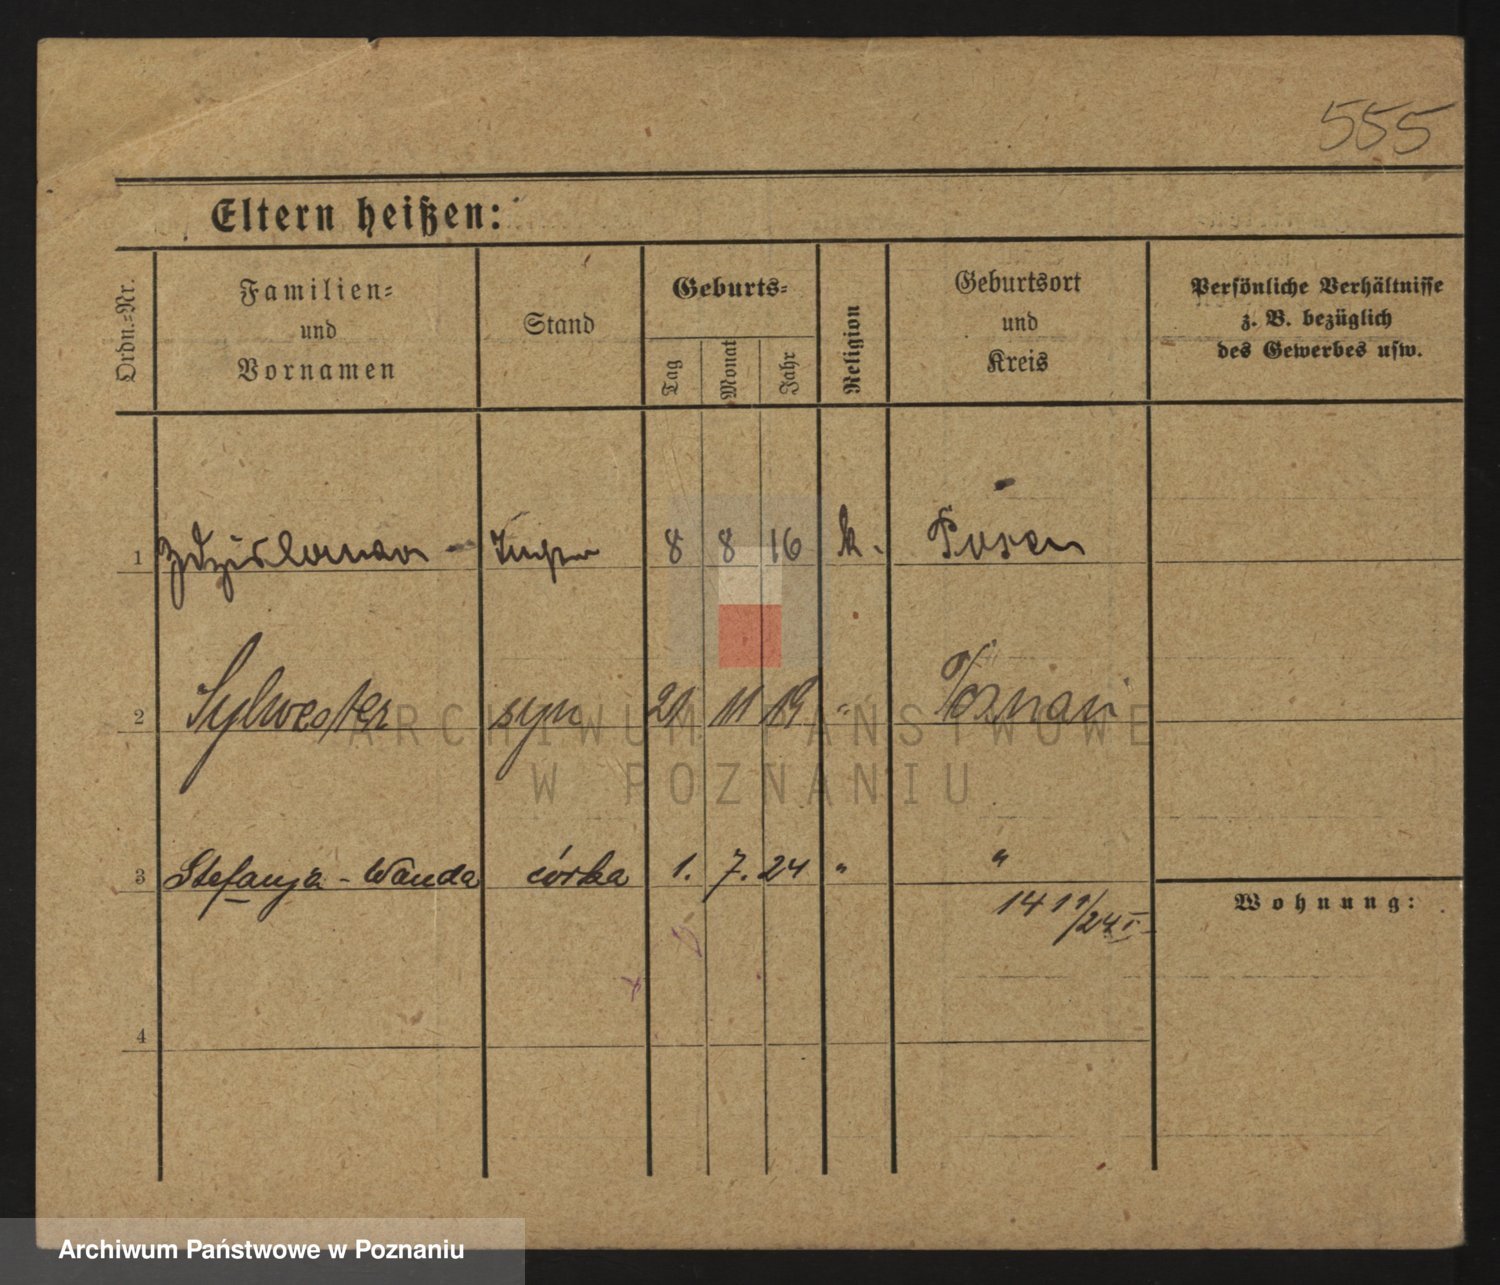 555
Eltern heißen:
Ordn.-Nr.
Familien-
und
Vornamen
Stand
Geburts-
Tag
Monat
Jahr
Religion
Geburtsort
und
Kreis
Persönliche Verhältnisse
z. B. bezüglich
des Gewerbes usw.
1 Zdzislawa - Tochter 8 8 16 k. Posen
2 Sylwester syn 21 11 19 " Poznań
3 Stefanja - Wanda córka 1. 7. 24 " "
Wohnung:
4
ARCHIWUM PAŃSTWOWE
W POZNANIU
Archiwum Państwowe w Poznaniu